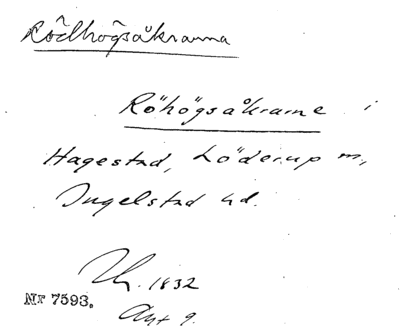 Rödhögsåkrarna
Röhögsåkrarne i
Hagestad, Löderup m,
Ingelstad hd.
1832
Nr 7593.
Akt 9.